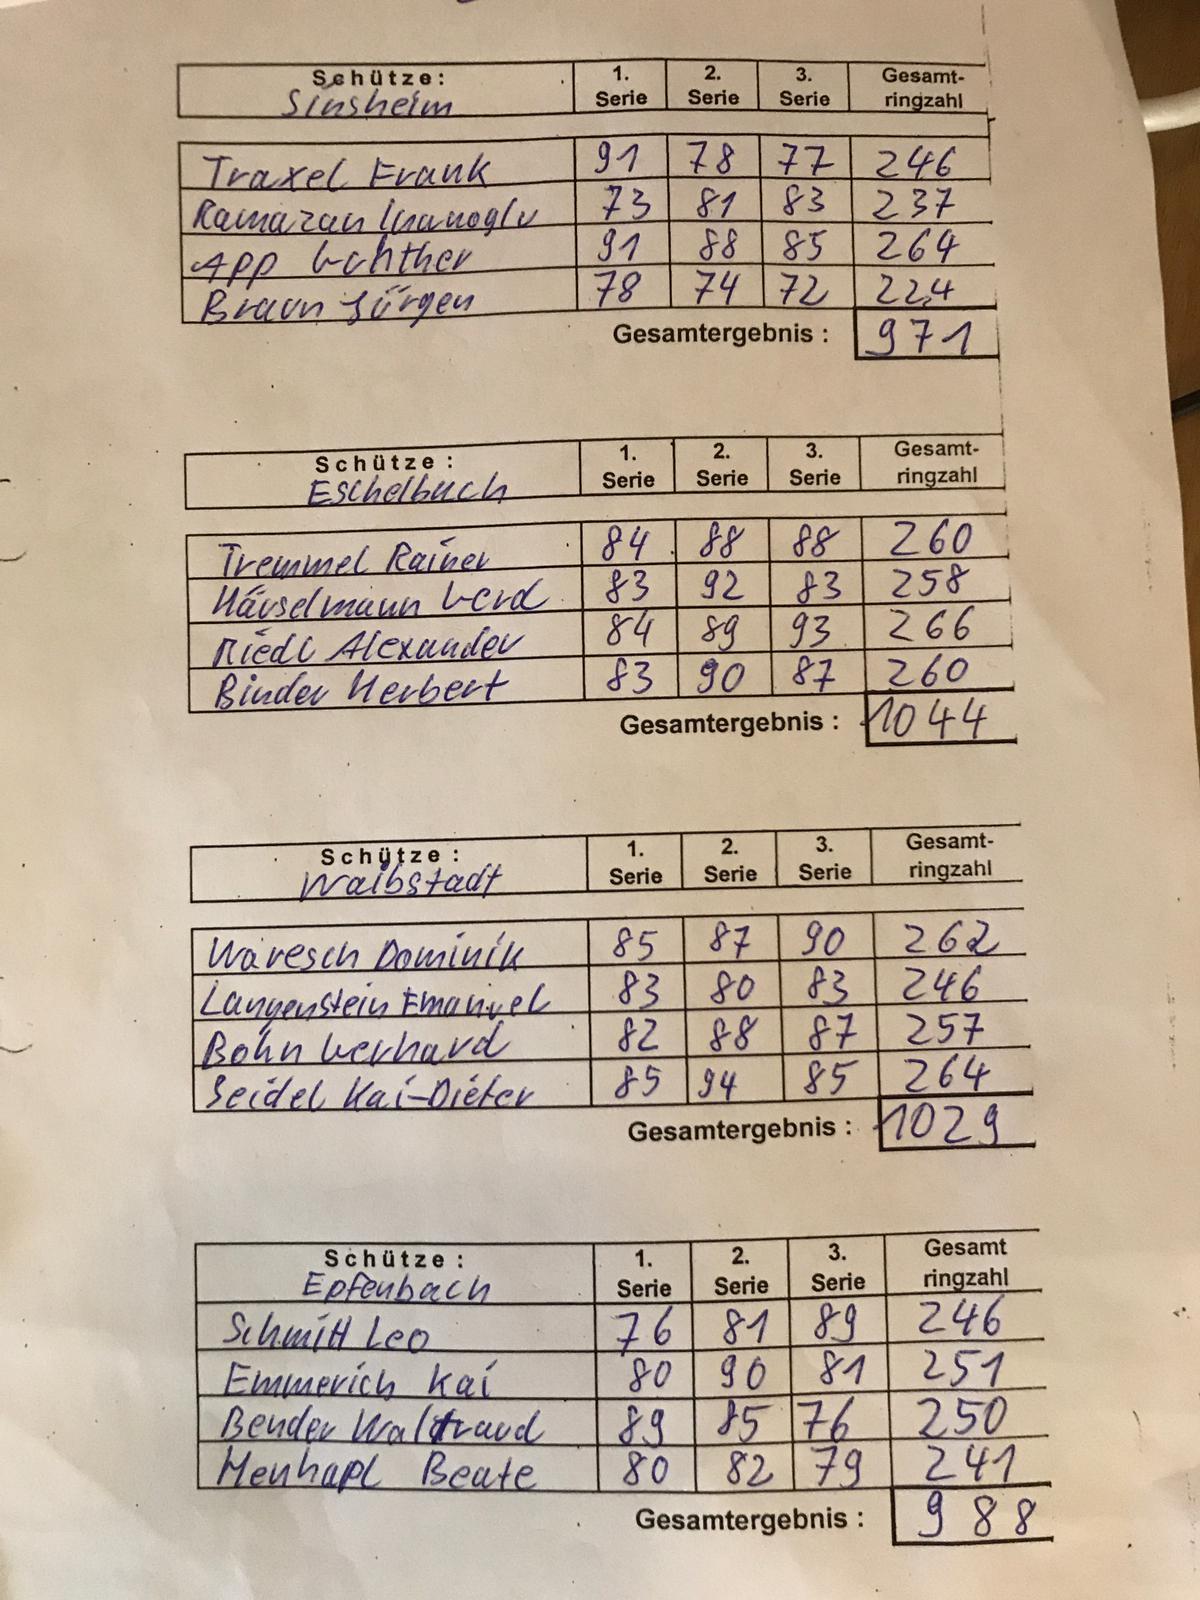 Schütze: 1. 2. 3. Gesamt-
Sinsheim Serie Serie Serie ringzahl
Traxel Frank 91 78 77 246
Ramazan Inanoglu 73 81 83 237
App Günther 91 88 85 264
Braun Jürgen 78 74 72 224
Gesamtergebnis : 971
Schütze : 1. 2. 3. Gesamt-
Eschelbach Serie Serie Serie ringzahl
Tremmel Rainer 84 88 88 260
Häuselmann Gerd 83 92 83 258
Riedl Alexander 84 89 93 266
Binder Herbert 83 90 87 260
Gesamtergebnis : 1044
Schütze : 1. 2. 3. Gesamt-
Waibstadt Serie Serie Serie ringzahl
Waresch Dominik 85 87 90 262
Langenstein Emanuel 83 80 83 246
Bohn Gerhard 82 88 87 257
Seidel Kai-Dieter 85 94 85 264
Gesamtergebnis : 1029
Schütze : 1. 2. 3. Gesamt
Epfenbach Serie Serie Serie ringzahl
Schmitt Leo 76 81 89 246
Emmerich Kai 80 90 81 251
Bender Waltraud 89 85 76 250
Menhapl Beate 80 82 79 241
Gesamtergebnis : 988